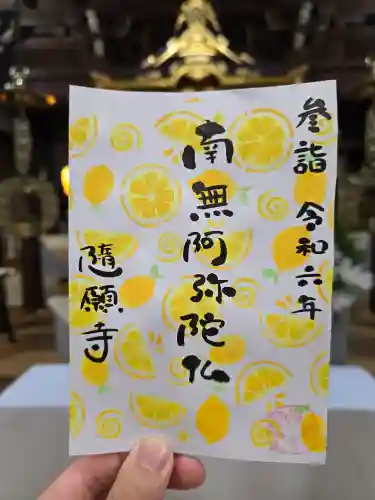 参詣 令和六年
南無阿弥陀仏
隨願寺